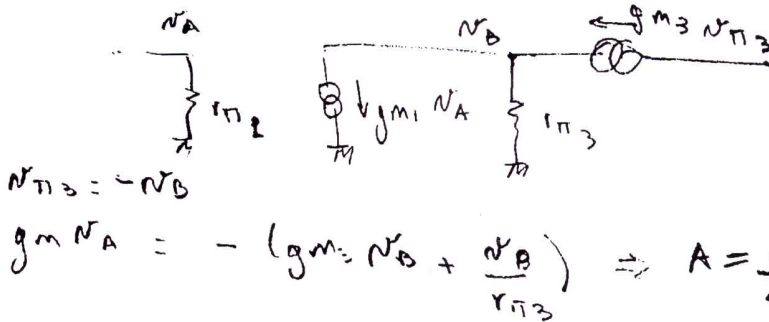 v_A v_B g_m3 v_π3
r_π1 ↓ g_m1 v_A r_π3
v_π3 = -v_B
g_m v_A = - (g_m3 v_B + v_B / r_π3) ⇒ A =